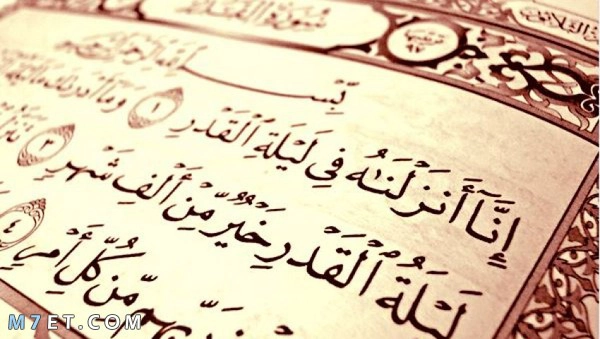 سُورَةُ القَدْرِ
بِسْمِ اللَّهِ الرَّحْمَٰنِ الرَّحِيمِ
إِنَّآ أَنزَلْنَٰهُ فِى لَيْلَةِ ٱلْقَدْرِ ١ وَمَآ أَدْرَىٰكَ مَا لَيْلَةُ
لَيْلَةُ ٱلْقَدْرِ خَيْرٌ مِّنْ أَلْفِ شَهْرٍ ٣
مِّن كُلِّ أَمْرٍ ٤
M7ET.COM